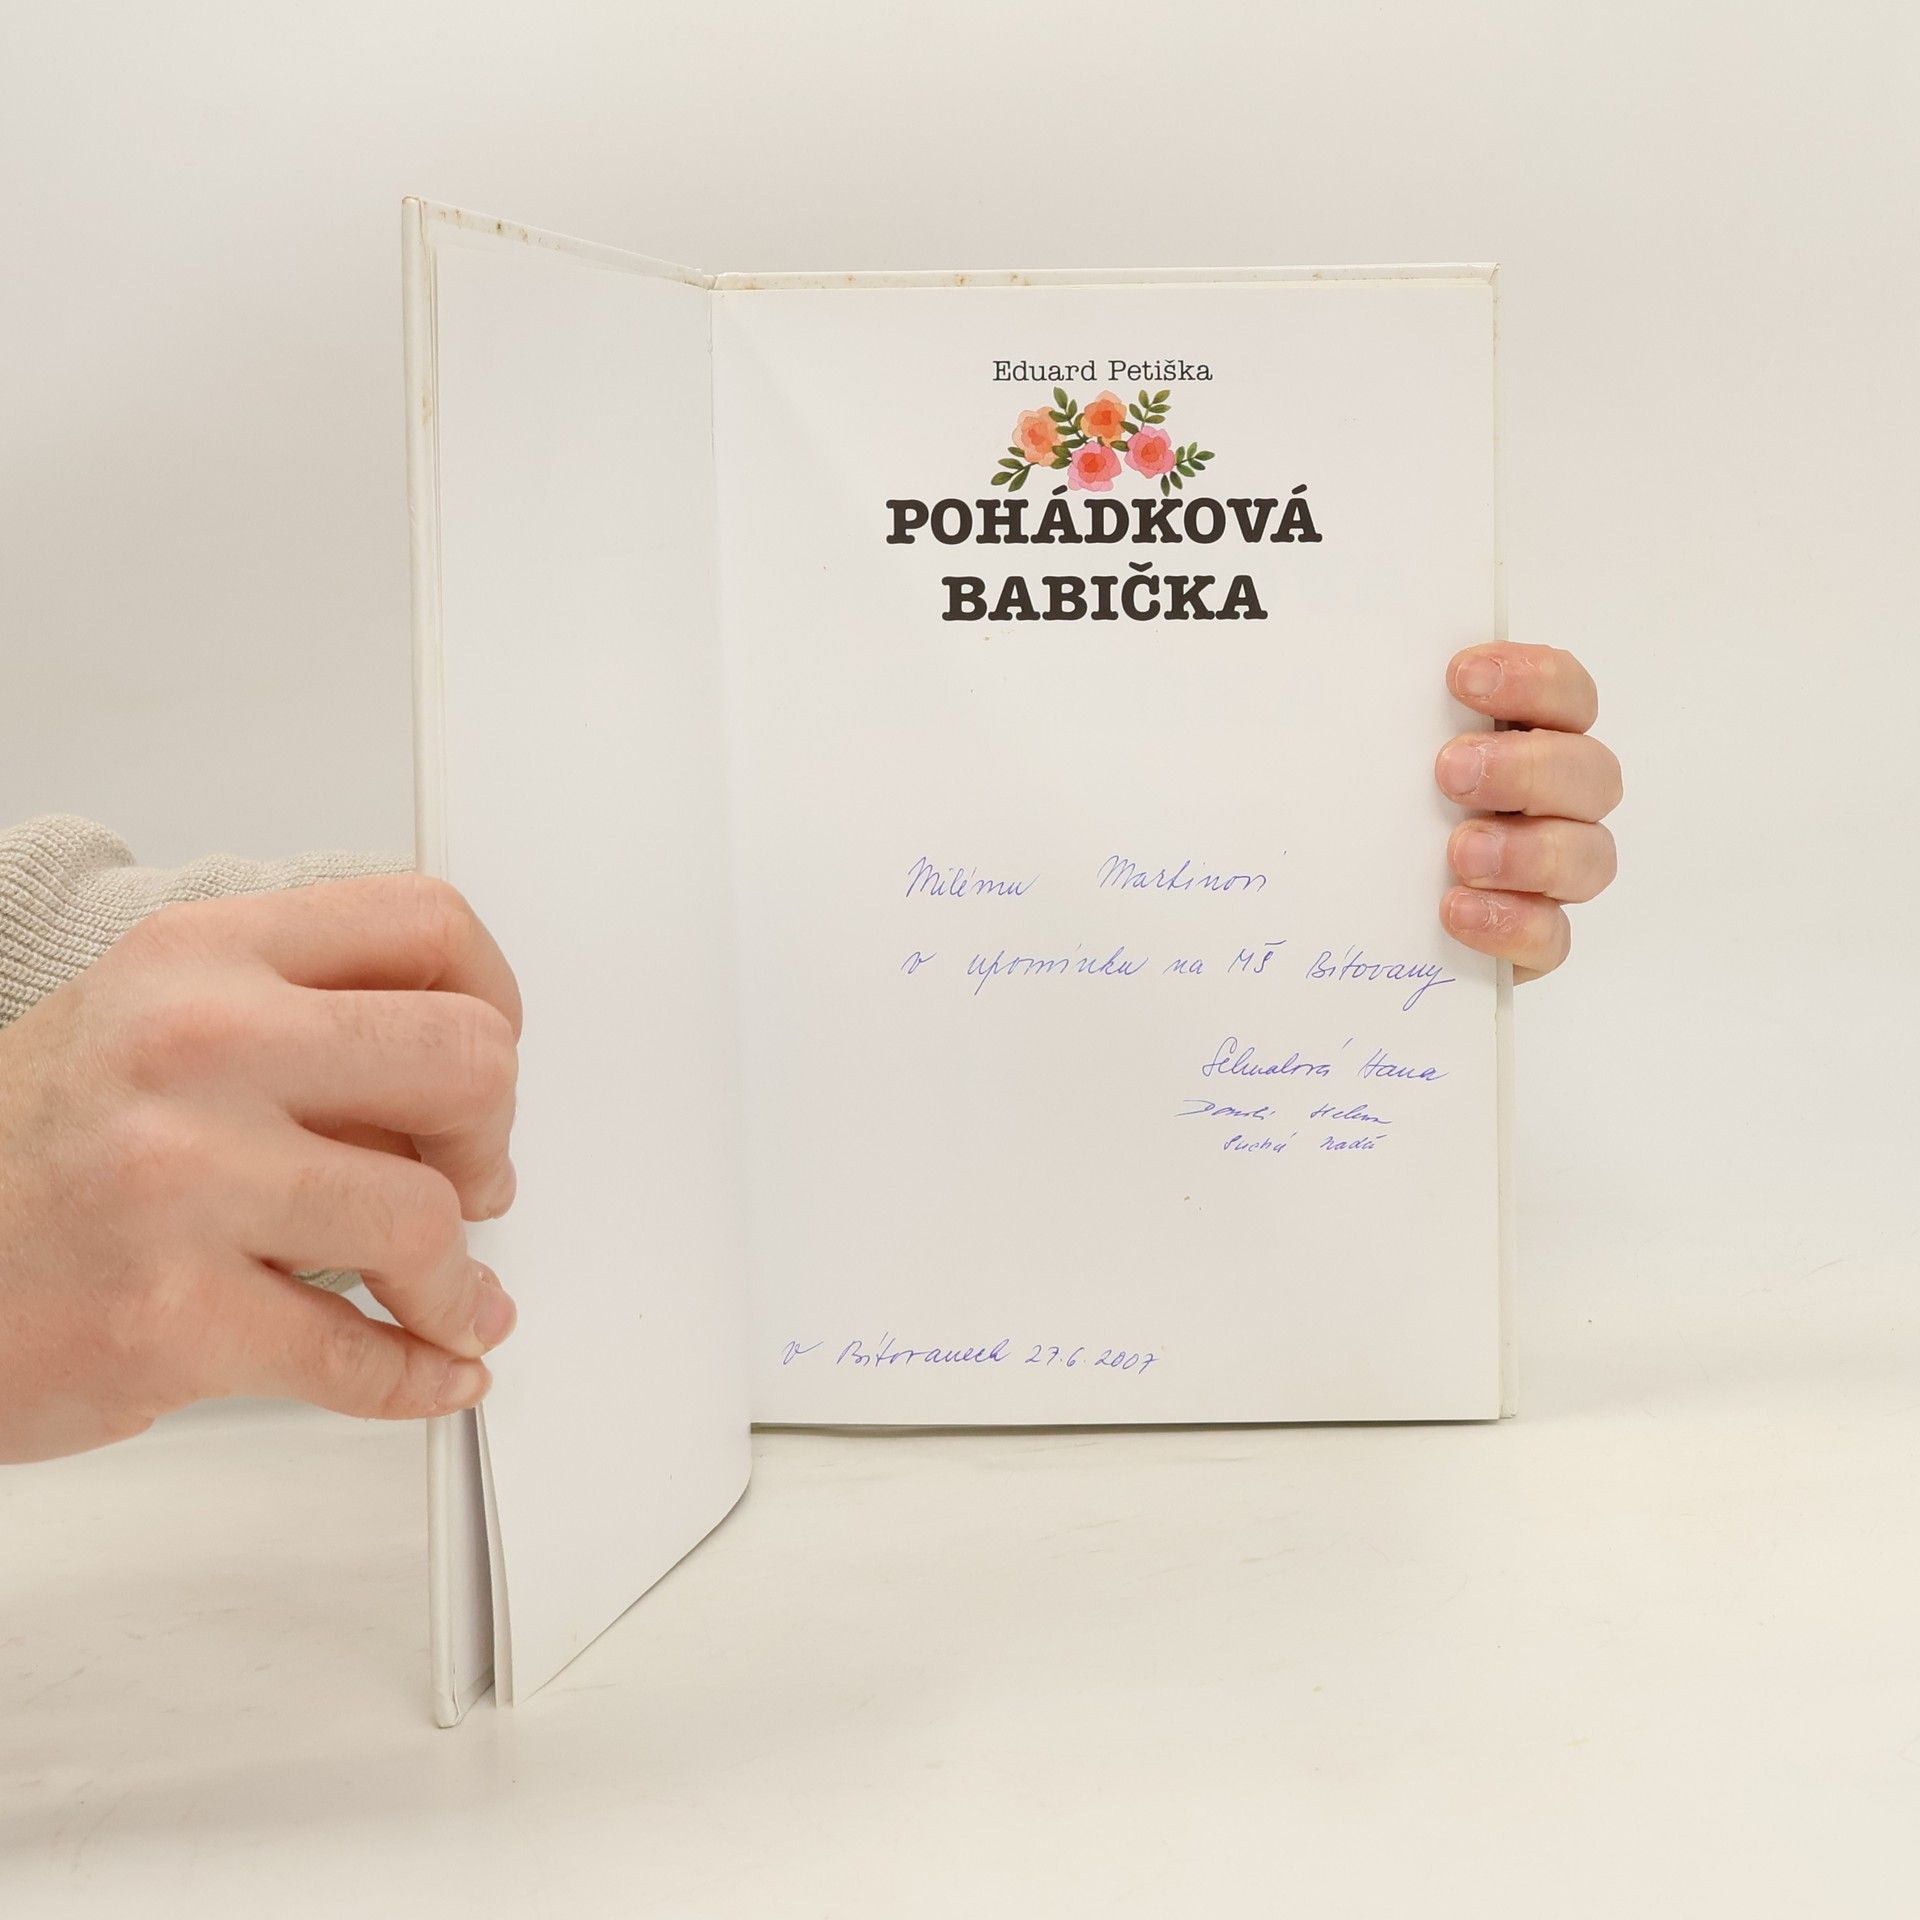 Eduard Petiška
POHÁDKOVÁ
BABIČKA
Milému Martinovi
v upomínku na MŠ Bítovany
Hana
Suchá Naďa
v Bítovanech 27.6.2007